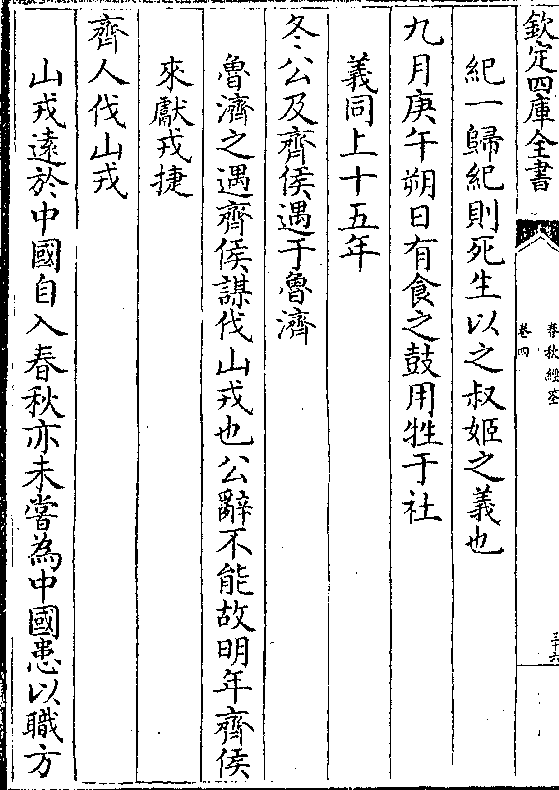 欽定四庫全書
春秋經筌
卷四
三十六
紀一歸紀則死生以之叔姬之義也
九月庚午朔日有食之鼓用牲于社
義同上十五年
冬公及齊侯遇于魯濟
魯濟之遇齊侯謀伐山戎也公辭不能故明年齊侯
來獻戎捷
齊人伐山戎
山戎遠於中國自入春秋亦未嘗為中國患以職方